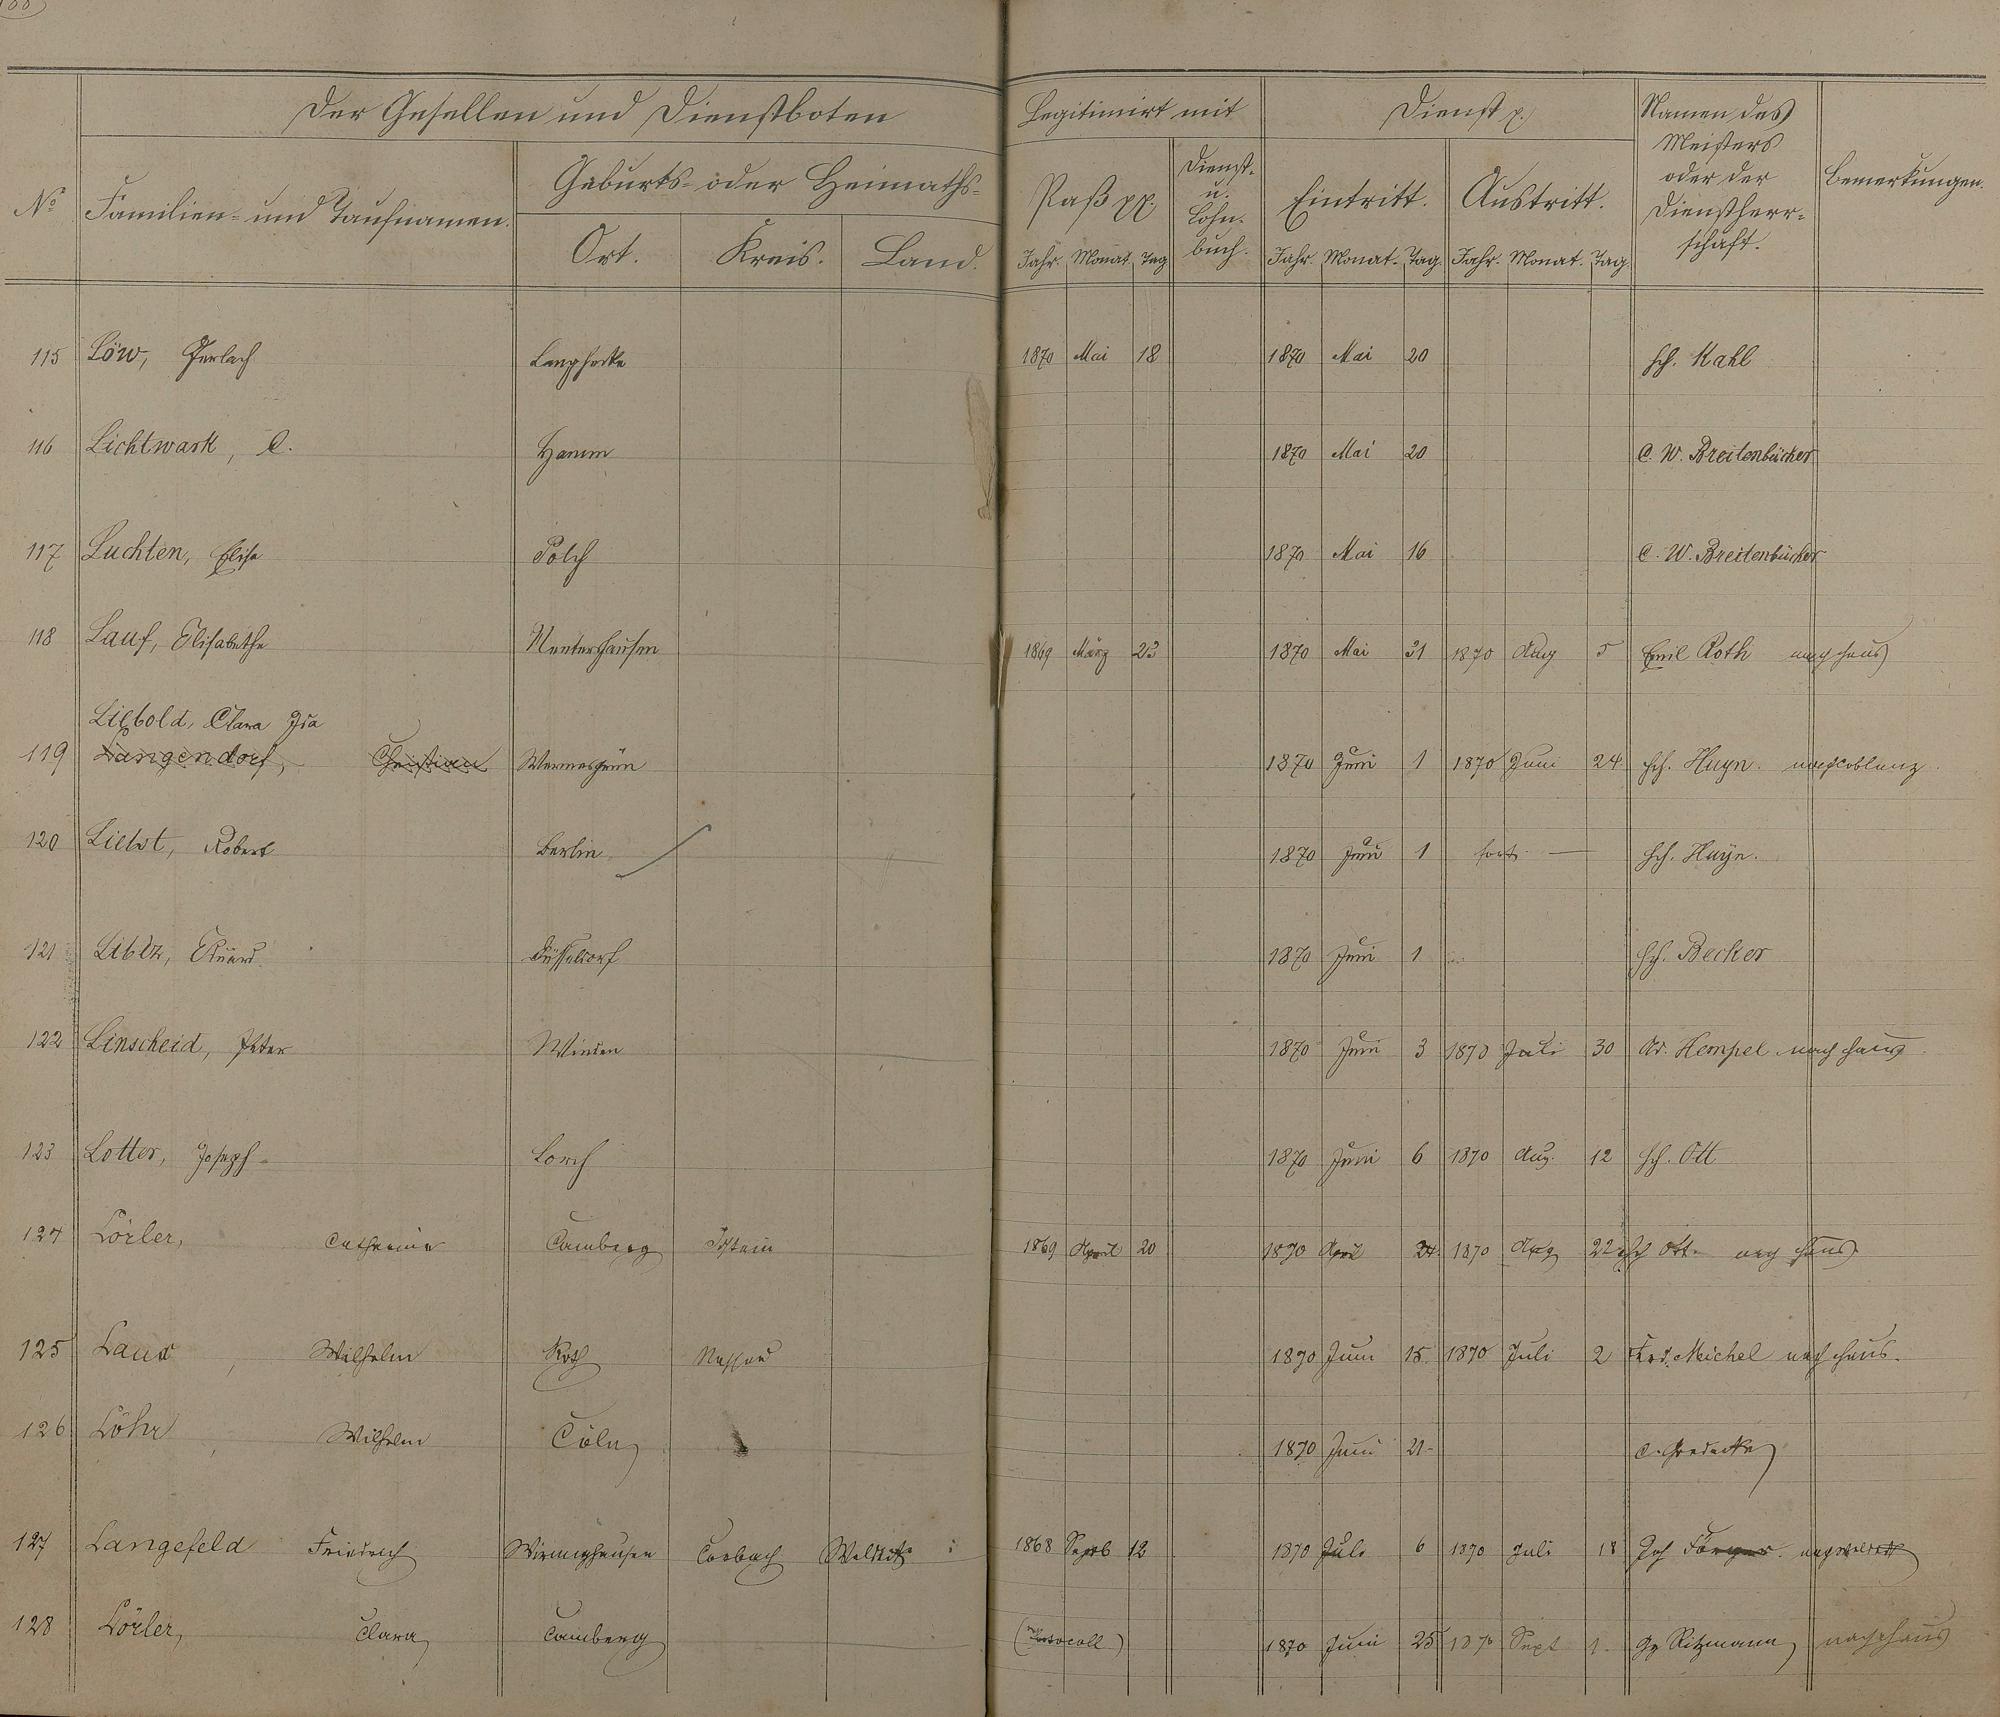 Der Gesellen und Dienstboten
Legitimirt mit
Dienst p.
Namen des
Meisters
oder der
Dienstherr-
schaft.
Bemerkungen.
No
Familien- und Taufnamen.
Geburts- oder Heimaths-
Ort. Kreis. Land.
Paß pp.
Dienst-
u.
Lohn-
buch.
Eintritt. Austritt.
Jahr. Monat Tag Jahr. Monat. Tag. Jahr. Monat. Tag.
115 Löw, Gerlach 1870 Mai 18 1870 Mai 20 Hch. Kahl
116 Lichtwark, C. Hamm 1870 Mai 20 C. W. Breitenbücher
117 Luchten, Elise Polch 1870 Mai 16 C. W. Breitenbücher
118 Lauf, Elisabethe Nentershausen 1869 März 23 1870 Mai 31 1870 Aug 5 Emil Roth nach Haus
Liebold, Clara Ida
119 Langendorf, Christian Wernesgrün 1870 Juni 1 1870 Juni 24 Hch. Huyn. nach Coblenz.
120 Robert Berlin 1870 Juni 1 fort — Hch. Huyn.
121 Eduard Düsseldorf 1870 Juni 1 Hch. Becker
122 Linscheid, Peter Winden 1870 Juni 3 1870 Juli 30 Ad. Hempel nach Haus
123 Lotter, Joseph Lorch 1870 Juni 6 1870 Aug. 12 Hch. Ott
124 Lörler, Catharine Camberg Idstein 1869 April 20 1870 April 1870 Aug 22 Hch Ott. nach Haus
125 Laux, Wilhelm Roth Nassau 1870 Juni 15. 1870 Juli 2 Frd. Michel nach Haus.
126 Löhr, Wilhelm Cöln 1870 Juni 21 C.
127 Langefeld Friedrich Wirminghausen Corbach Waldeck 1868 Septb 12 1870 Juli 6 1870 Juli 18 Joh
128 Lörler, Clara Camberg (Protocoll) 1870 Juni 25 1870 Sept 1. Gg Ritzmann nach Haus